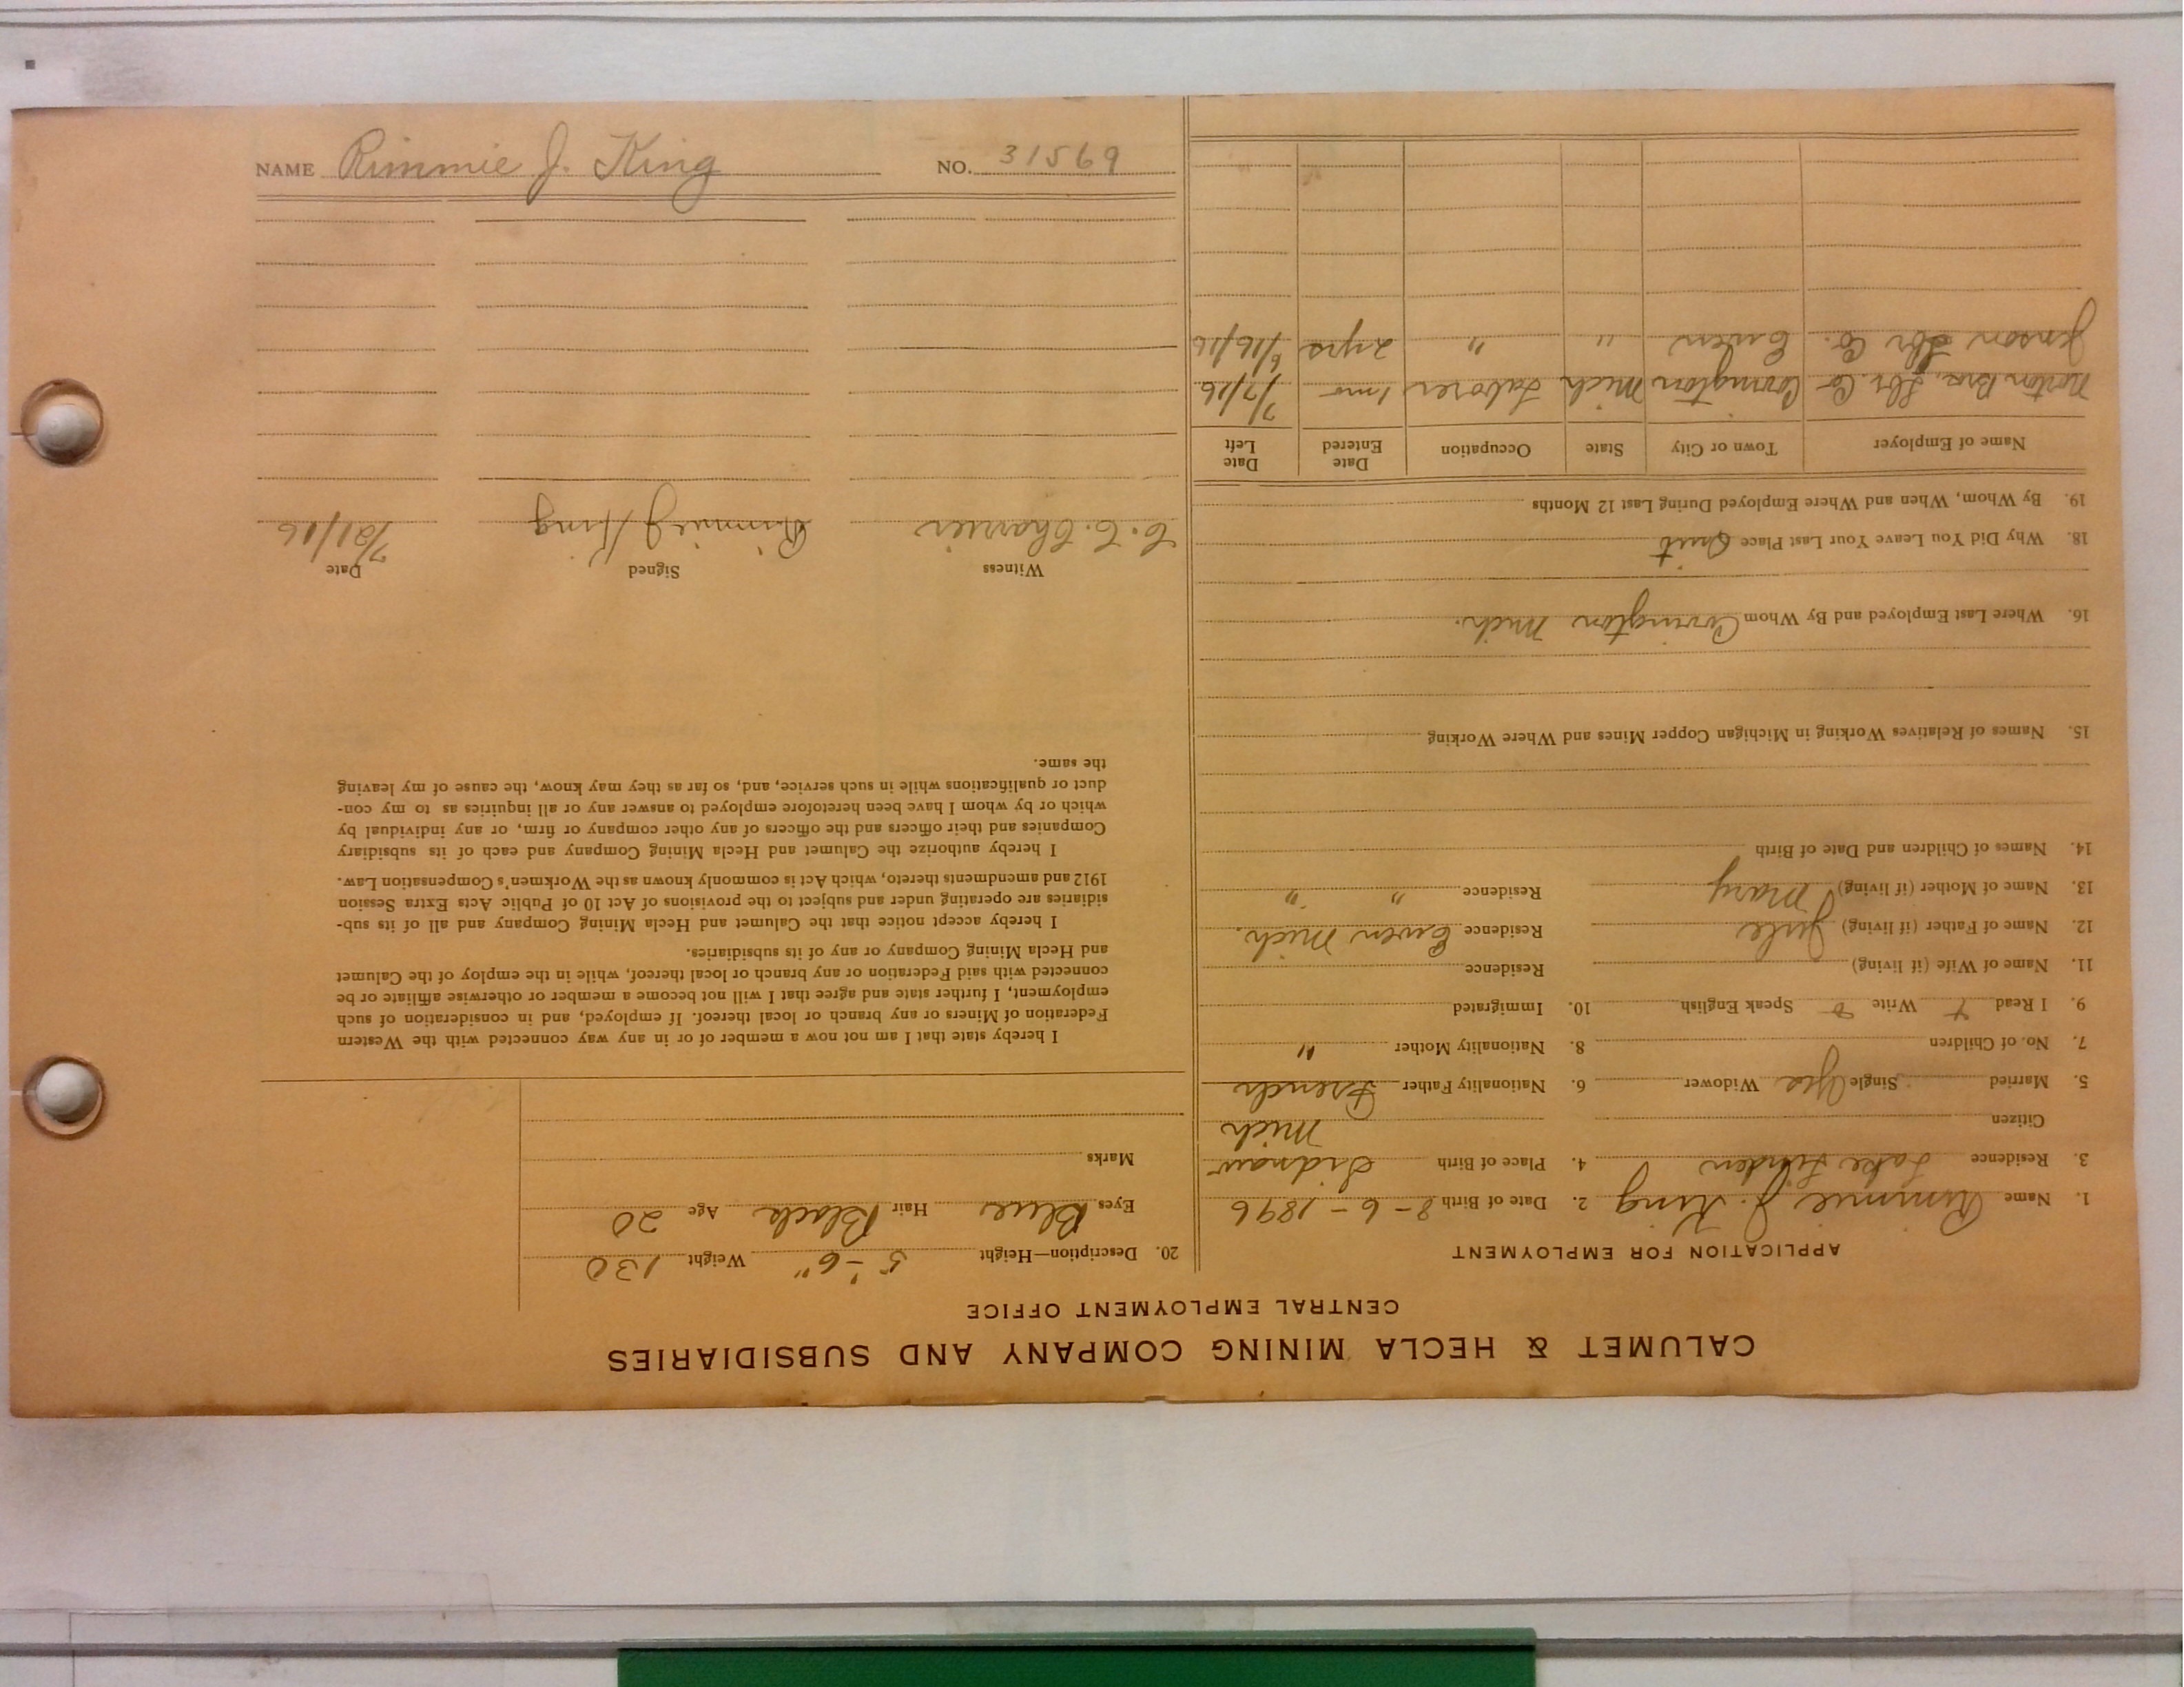 NAME Rimmie J. King NO. 31569
CALUMET & HECLA MINING COMPANY AND SUBSIDIARIES
CENTRAL EMPLOYMENT OFFICE
APPLICATION FOR EMPLOYMENT
1. Name Rimmie J. King 2. Date of Birth 8-6-1896
3. Residence Lake Linden 4. Place of Birth Sidnaw
Citizen Mich
5. Married Single Yes Widower 6. Nationality Father French
7. No. of Children 8. Nationality Mother "
9. I Read Write Speak English 10. Immigrated
11. Name of Wife (if living) Residence
12. Name of Father (if living) Jule Residence Ewen Mich.
13. Name of Mother (if living) Mary Residence " "
14. Names of Children and Date of Birth
15. Names of Relatives Working in Michigan Copper Mines and Where Working
16. Where Last Employed and By Whom Covington Mich.
18. Why Did You Leave Your Last Place Quit
19. By Whom, When and Where Employed During Last 12 Months
Name of Employer Town or City State Occupation Date Entered Date Left
Norton Bros. Lbr. Co Covington Mich Laborer 1 mo 7/7/16
Jenson Lbr Co. Ewen " " 2 yrs 6/16/16
20. Description—Height 5'-6" Weight 130
Eyes Blue Hair Black Age 20
Marks
I hereby state that I am not now a member of or in any way connected with the Western
Federation of Miners or any branch or local thereof. If employed, and in consideration of such
employment, I further state and agree that I will not become a member or otherwise affiliate or be
connected with said Federation or any branch or local thereof, while in the employ of the Calumet
and Hecla Mining Company or any of its subsidiaries.
I hereby accept notice that the Calumet and Hecla Mining Company and all of its sub-
sidiaries are operating under and subject to the provisions of Act 10 of Public Acts Extra Session
1912 and amendments thereto, which Act is commonly known as the Workmen's Compensation Law.
I hereby authorize the Calumet and Hecla Mining Company and each of its subsidiary
Companies and their officers and the officers of any other company or firm, or any individual by
which or by whom I have been heretofore employed to answer any or all inquiries as to my con-
duct or qualifications while in such service, and, so far as they may know, the cause of my leaving
the same.
Witness Signed Date
C. C. Charrier Rimmie J King 7/21/16